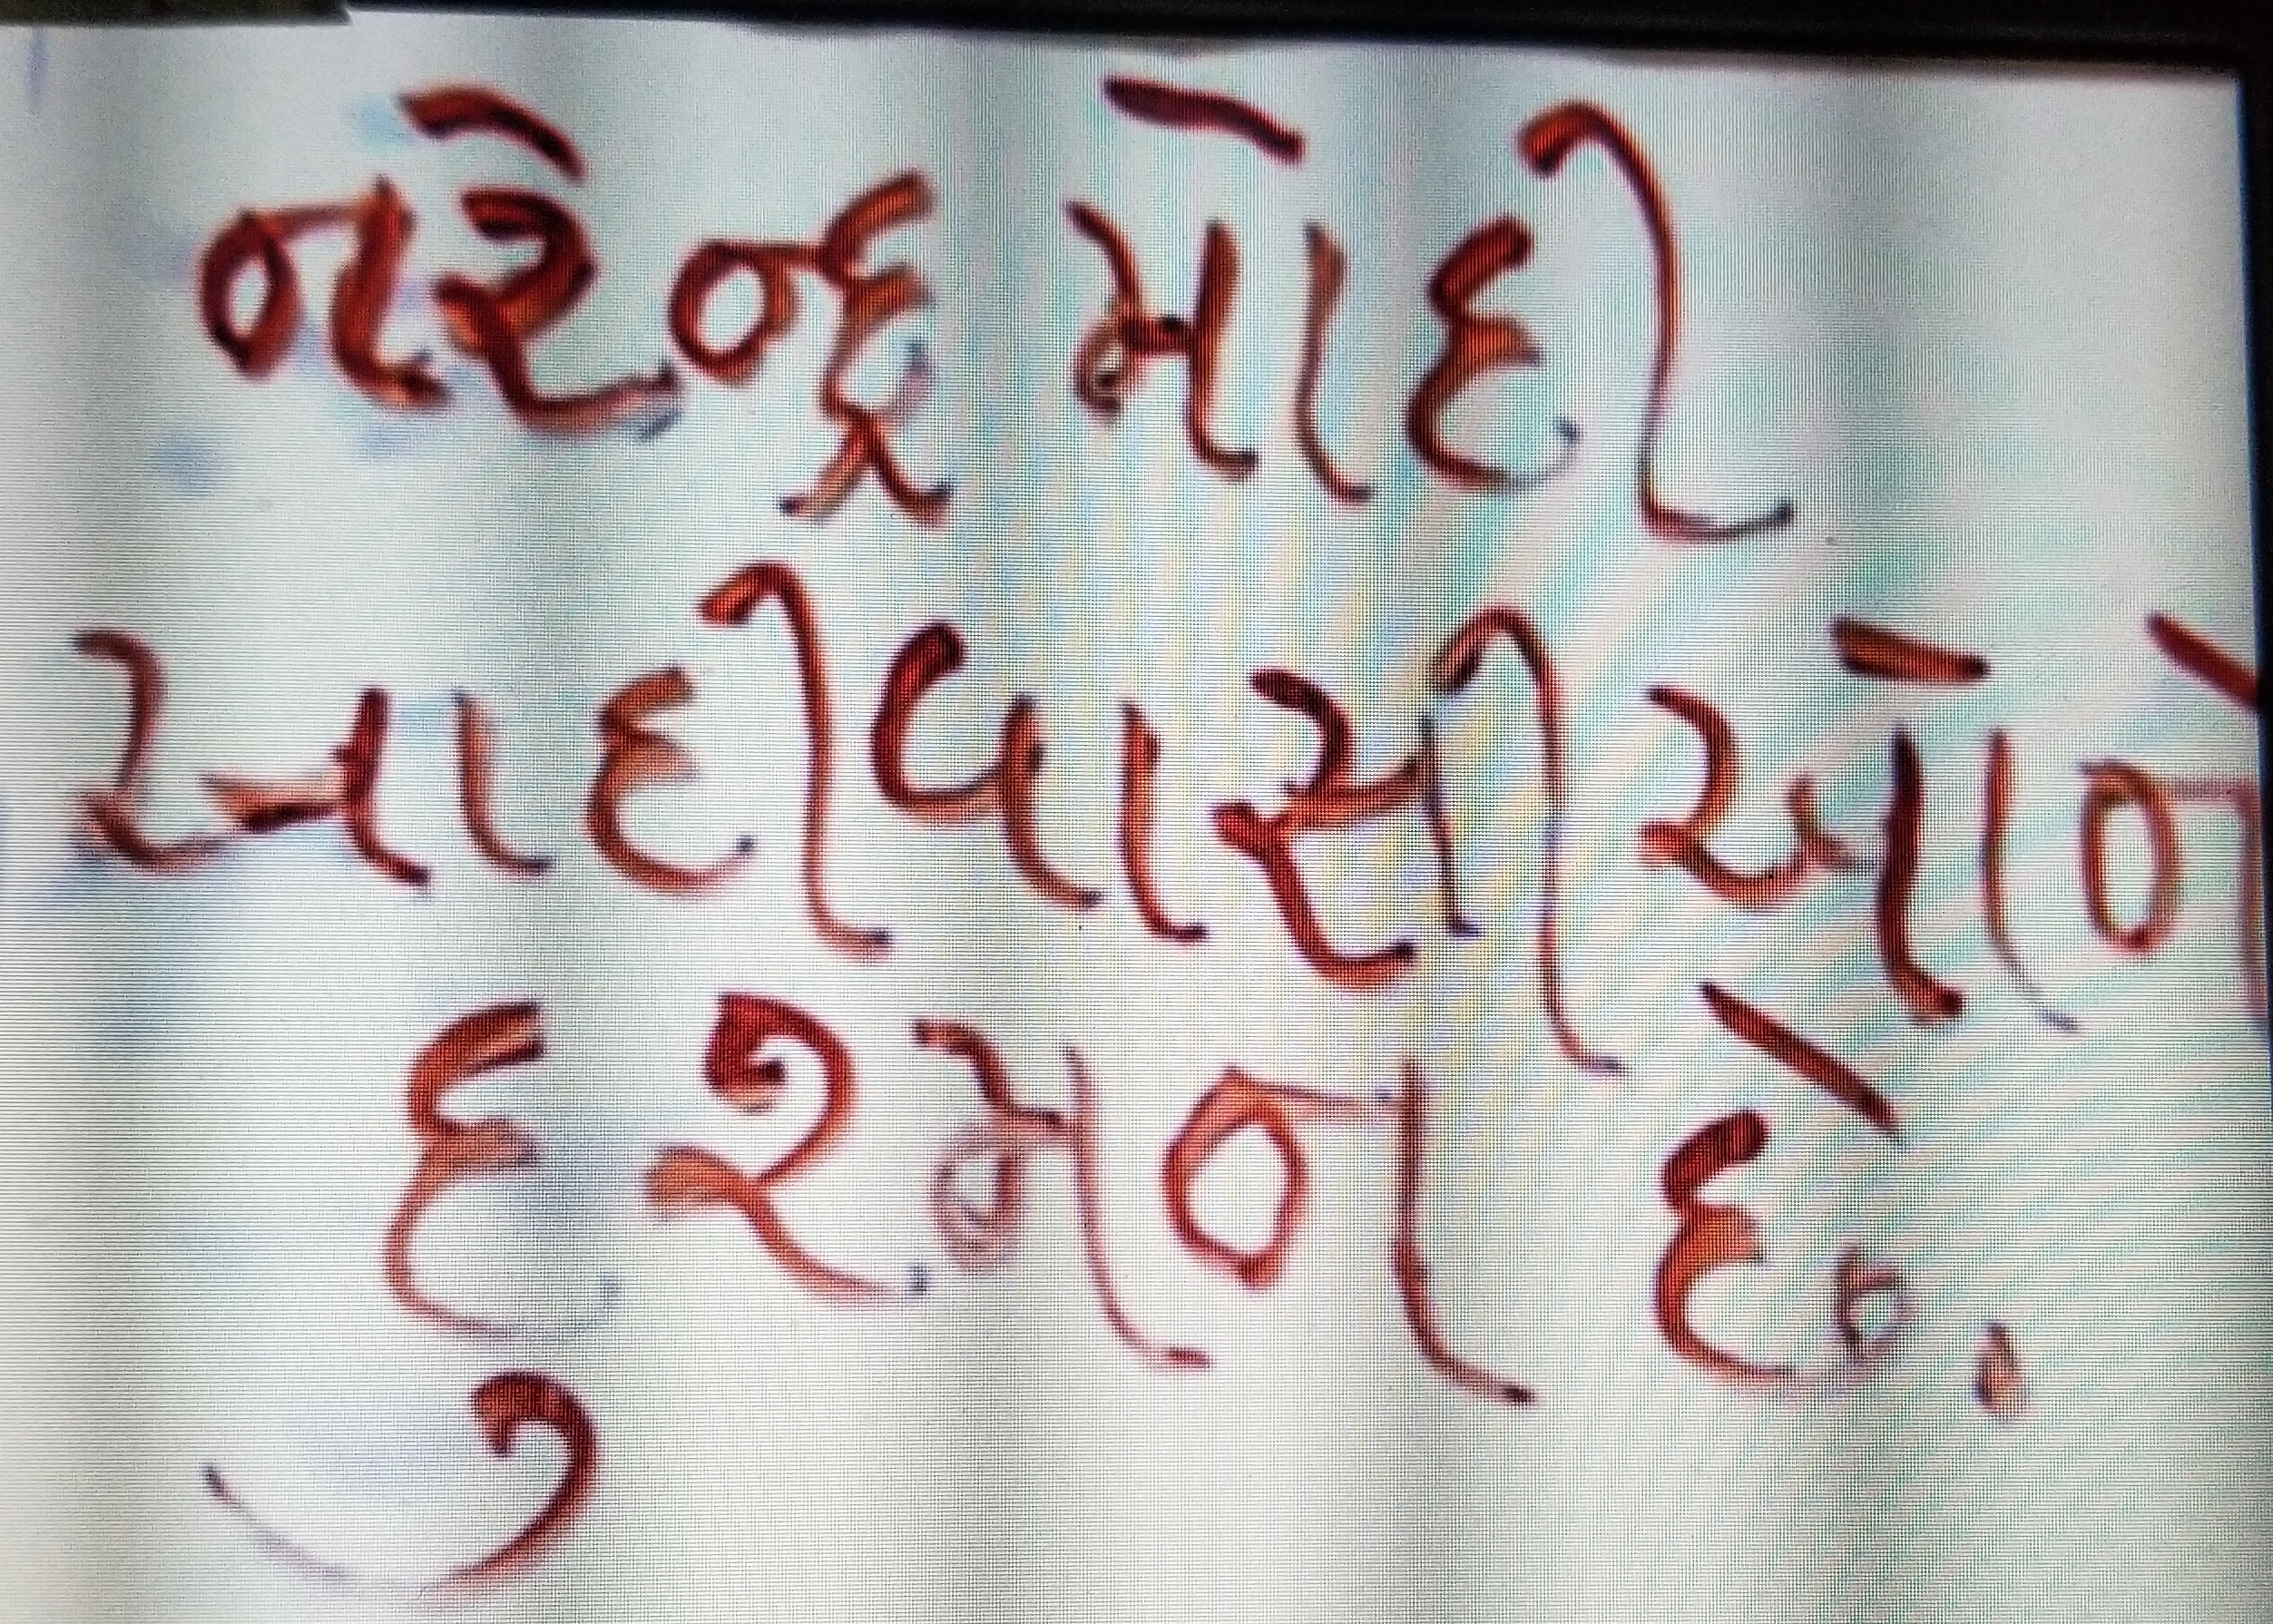 નરેન્દ્ર મોદી
આદીવાસીઓને
દુરમન છે.